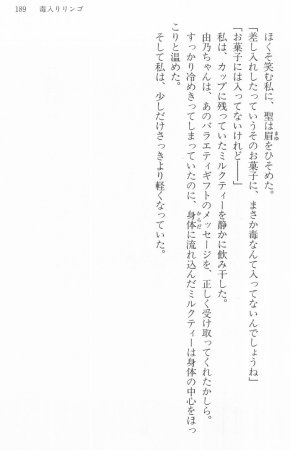 189 毒入りリンゴ
ほくそ笑む私に、聖は眉をひそめた。
「差し入れしたっていうそのお菓子に、まさか毒なんて入ってないんでしょうね」
「お菓子には入ってないけれど――」
私は、カップに残っていたミルクティーを静かに飲み干した。
由乃ちゃんは、あのバラエティギフトのメッセージを、正しく受け取ってくれたかしら。
すっかり冷めきってしまっていたのに、身体に流れ込んだミルクティーは身体の中心をほっ
こりと温めた。
そして私は、少しだけさっきより軽くなっていた。